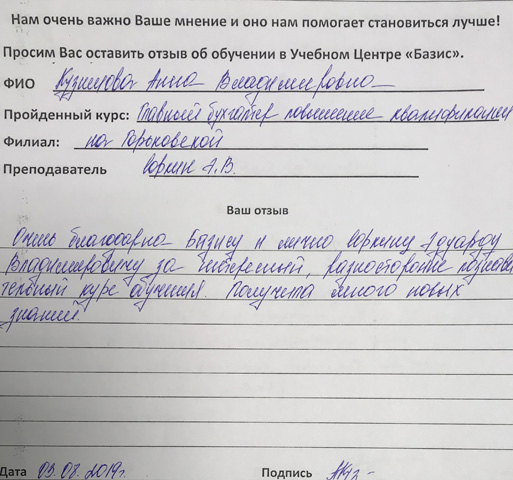 Нам очень важно Ваше мнение и оно нам помогает становиться лучше!
Просим Вас оставить отзыв об обучении в Учебном Центре «Базис».
ФИО Кузнецова Анна Владимировна
Пройденный курс: Главный бухгалтер повышение квалификации
Филиал: на Горьковской
Преподаватель Э.В.
Ваш отзыв
Очень благодарна Базису и лично Эдуарду
Владимировичу за интересный, разносторонне познава
тельный курс обучения. Получила много новых
знаний.
Дата 09.08.2019г. Подпись